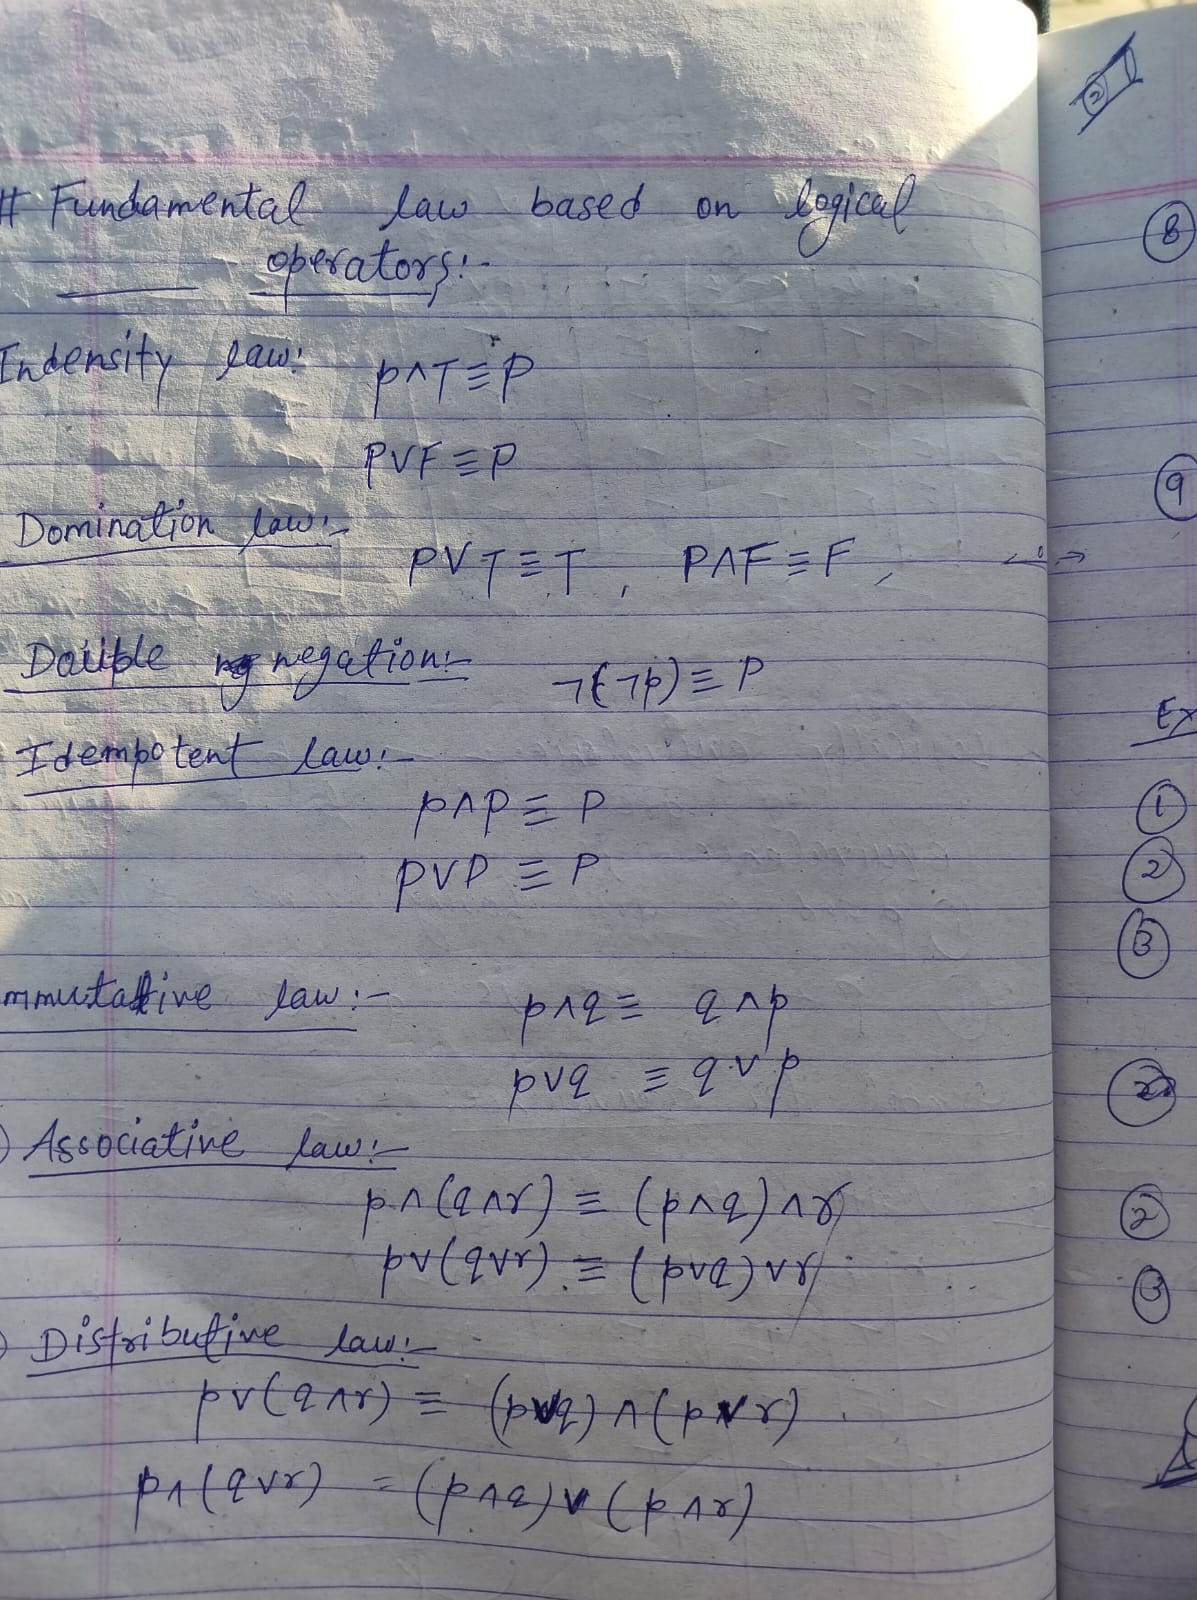 # Fundamental law based on logical
operators:-
Indensity law: p∧T≡P
PVF≡P
Domination law:-
PVT≡T, P∧F≡F,
Double negation:-
¬(¬p)≡P
Idempotent law:-
p∧p≡P
PVP≡P
mmutative law:-
p∧q≡ q∧p
p∨q ≡ q∨p
Associative law:-
p∧(q∧r) ≡ (p∧q)∧r
p∨(q∨r) ≡ (p∨q)∨r
Distributive law:-
p∨(q∧r) ≡ (p∨q)∧(p∨r)
p∧(q∨r) = (p∧q)∨(p∧r)
2
8
9
Ex
1
2
3
2
3